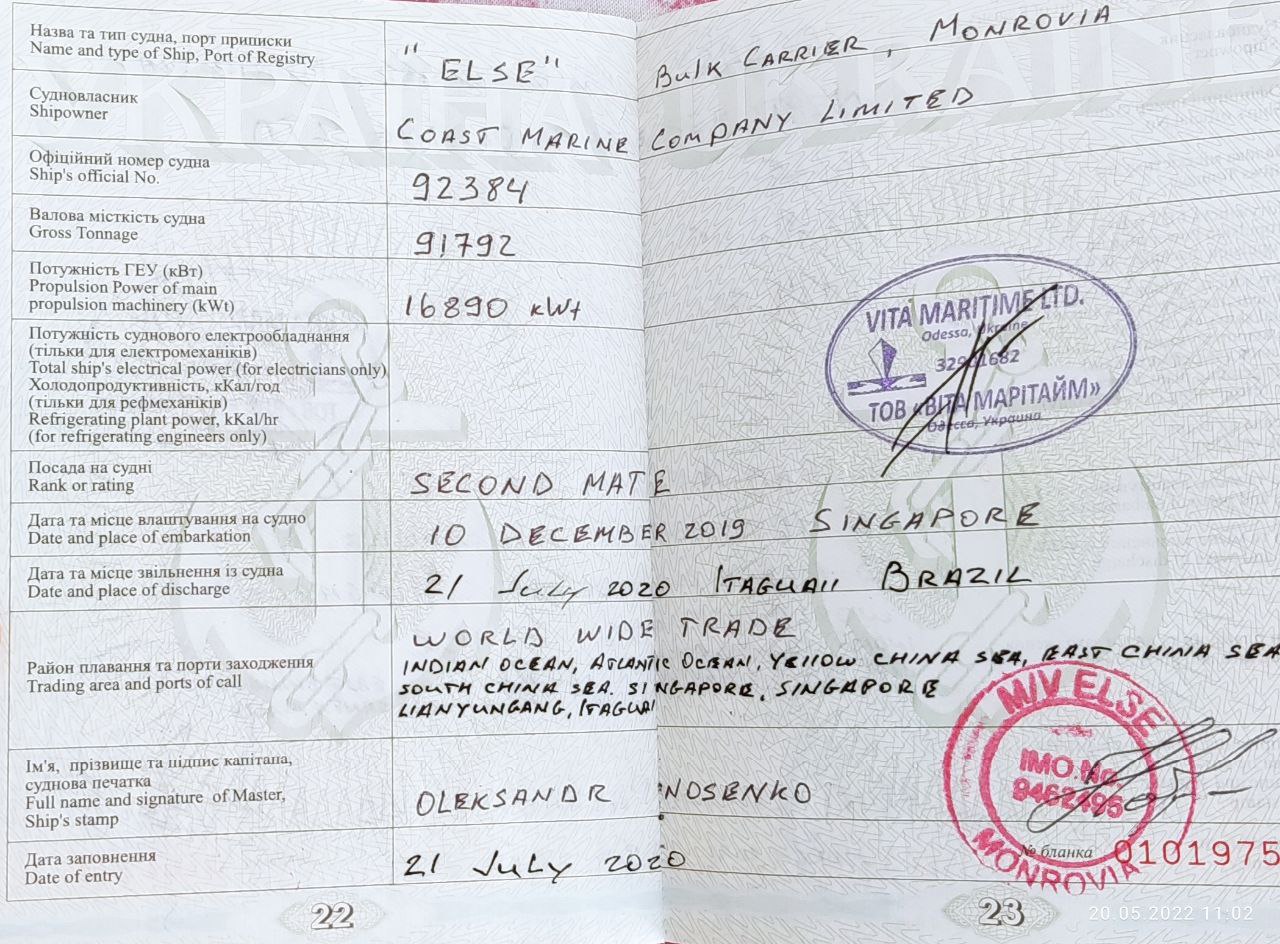 Назва та тип судна, порт приписки
Name and type of Ship, Port of Registry
"ELSE" Bulk CARRIER, MONROVIA
Судновласник
Shipowner
COAST MARINE COMPANY LIMITED
Офіційний номер судна
Ship's official No.
92384
Валова місткість судна
Gross Tonnage
91792
Потужність ГЕУ (кВт)
Propulsion Power of main
propulsion machinery (kWt)
16890 kWt
VITA MARITIME LTD.
Odessa, Ukraine
ТОВ «ВІТА МАРІТАЙМ»
Одесса, Украина
Потужність суднового електрообладнання
(тільки для електромеханіків)
Total ship's electrical power (for electricians only)
Холодопродуктивність, кКал/год
(тільки для рефмеханіків)
Refrigerating plant power, kKal/hr
(for refrigerating engineers only)
Посада на судні
Rank or rating
SECOND MATE
Дата та місце влаштування на судно
Date and place of embarkation
10 DECEMBER 2019 SINGAPORE
Дата та місце звільнення із судна
Date and place of discharge
21 July 2020 ITAGUAII BRAZIL
Район плавання та порти заходження
Trading area and ports of call
WORLD WIDE TRADE
INDIAN OCEAN, ATLANTIC OCEAN, YELLOW CHINA SEA, EAST CHINA SEA
SOUTH CHINA SEA. SINGAPORE, SINGAPORE
LIANYUNGANG, ITAGUAI
Ім'я, прізвище та підпис капітана,
суднова печатка
Full name and signature of Master,
Ship's stamp
OLEKSANDR NOSENKO
M/V ELSE
IMO.No.
9462495
MONROVIA
Дата заповнення
Date of entry
21 July 2020
№ бланка 0101975
22
23
20.05.2022 11:02